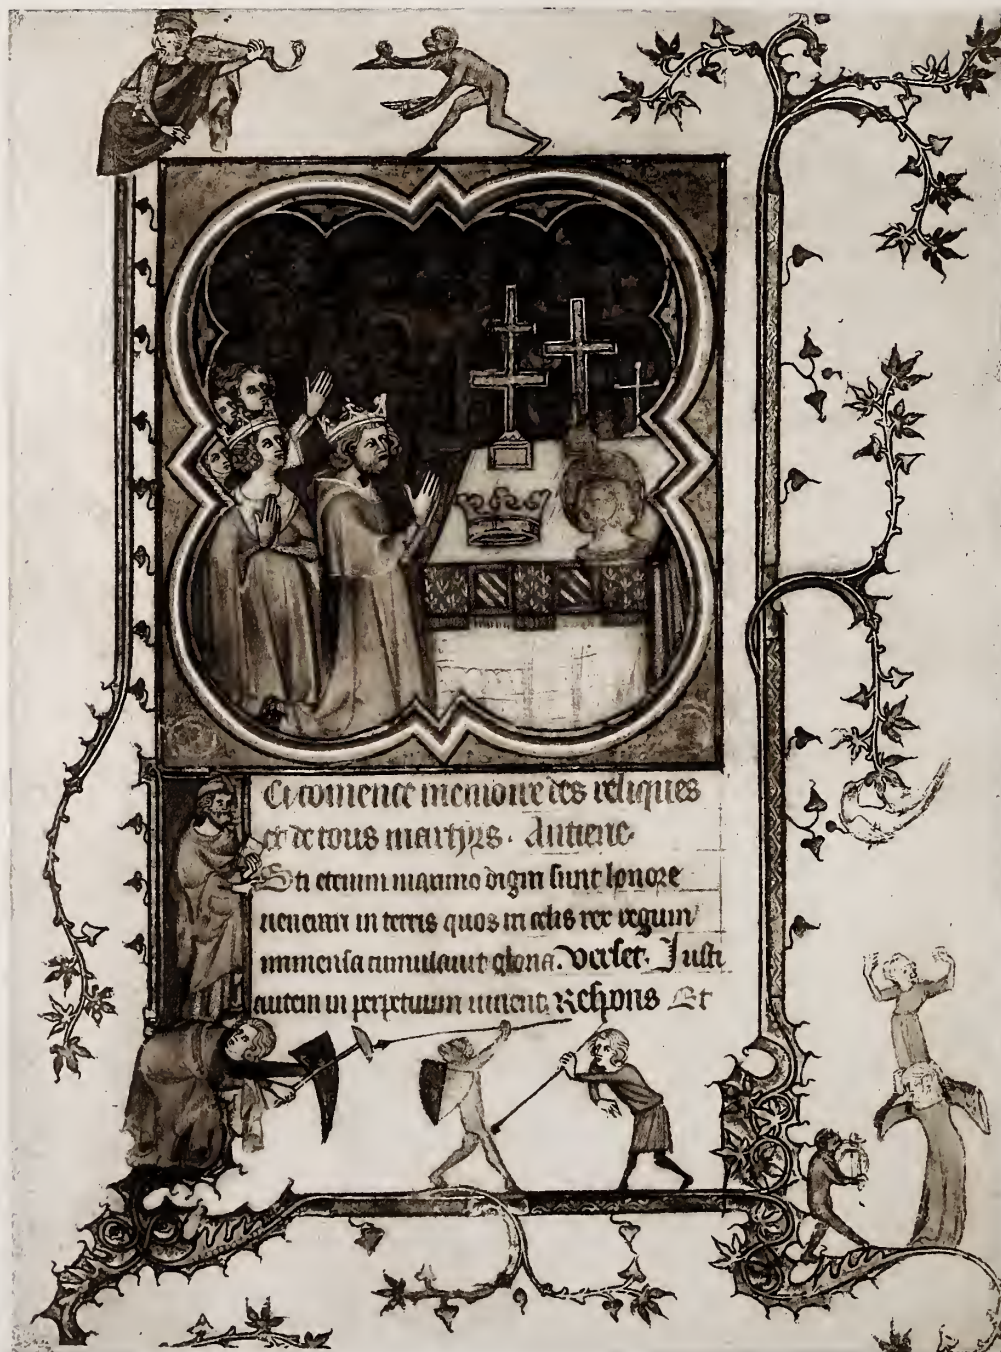 Ci comence memoire des reliques
et de tous martyrs. Antiene.
Sti etenim maximo digni sunt honore
uenerari in terris quos in celis rex regum
immensa cumulauit gloria. Verset. Justi
autem in perpetuum uiuent. Respons Et